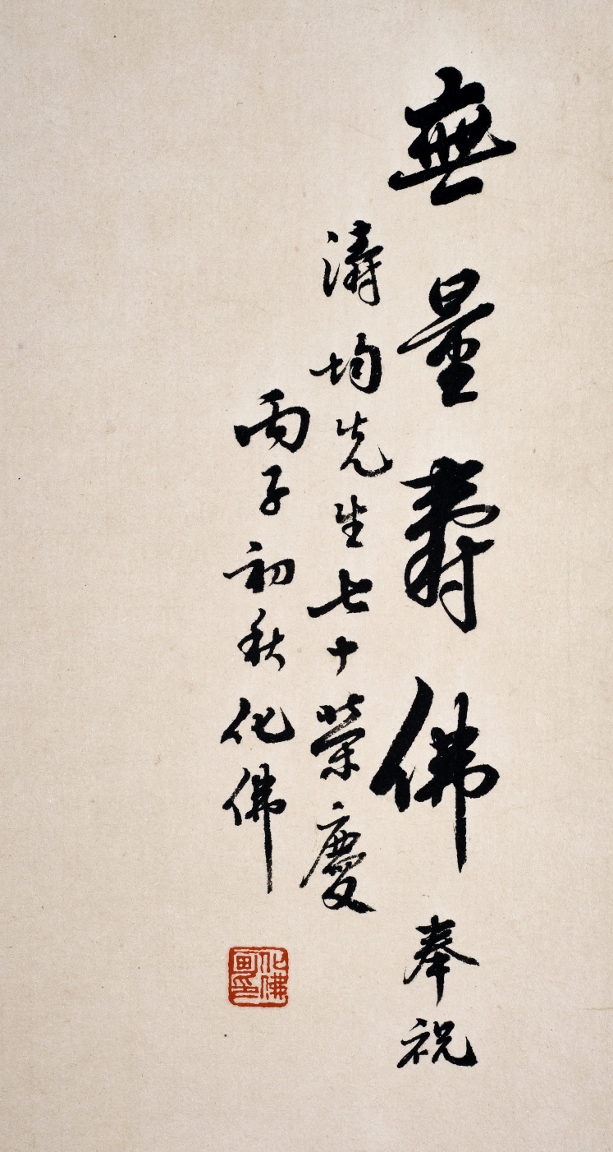 無量壽佛奉祝
濤均先生七十榮慶
丙子初秋化佛
化佛畫印